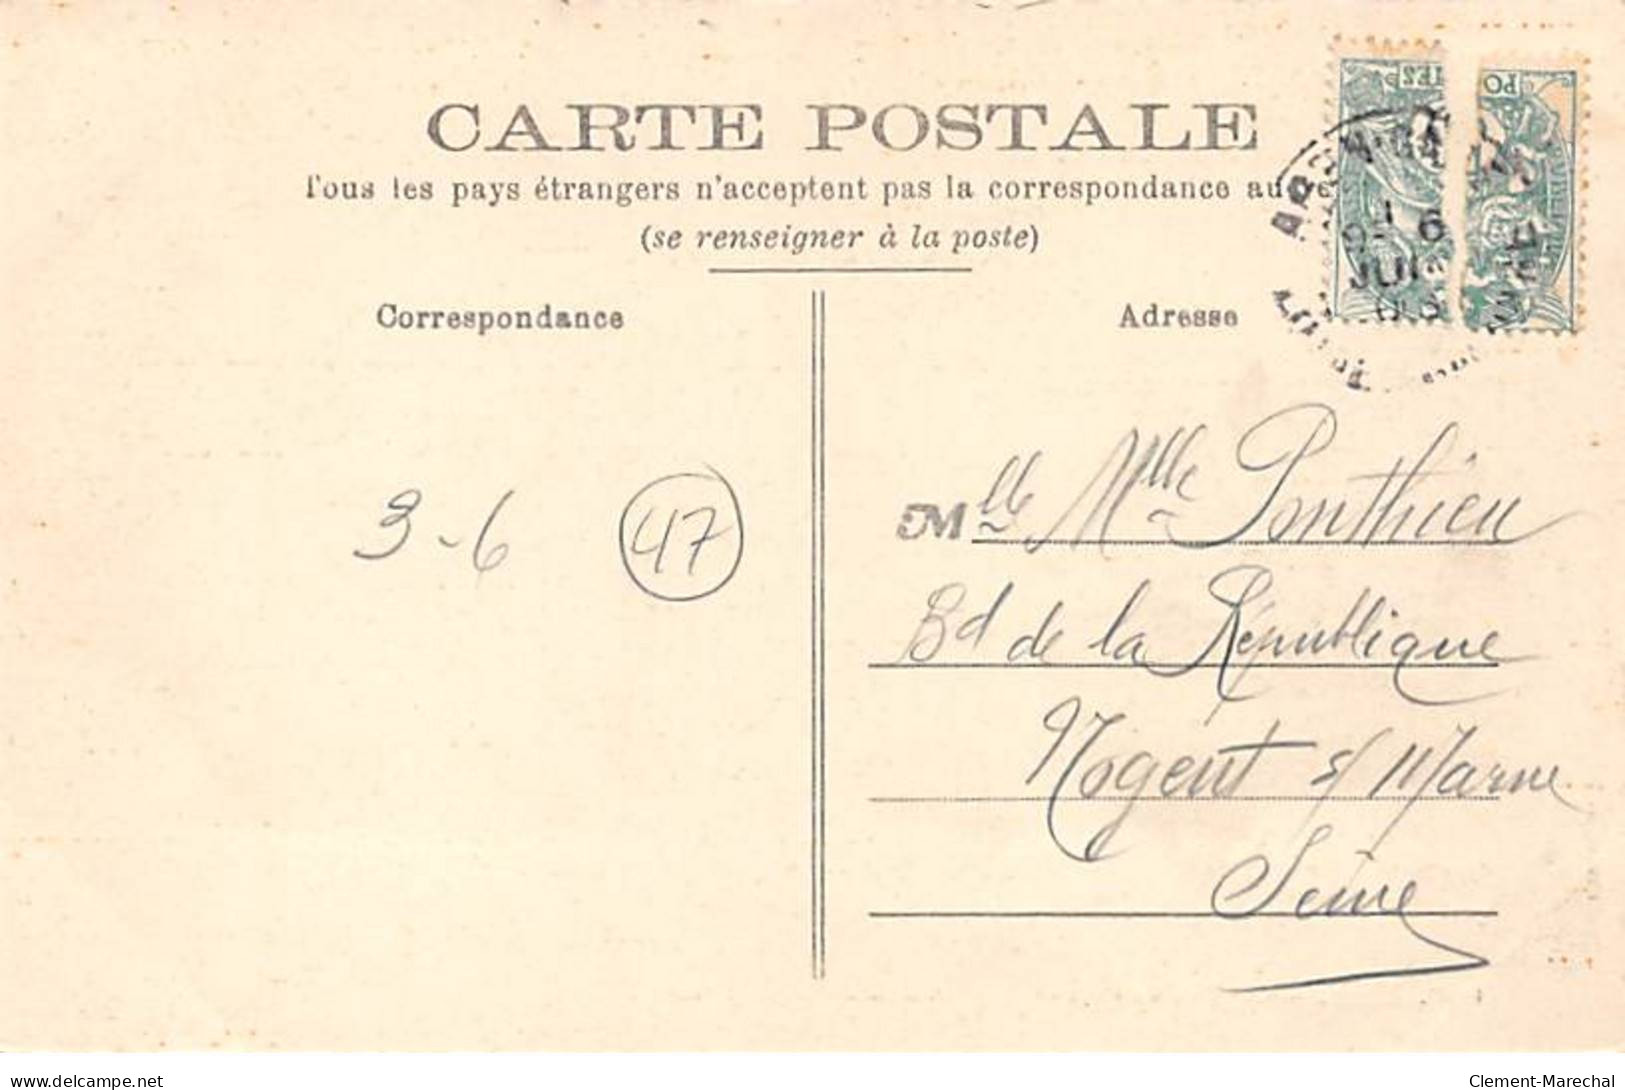 CARTE POSTALE
Tous les pays étrangers n'acceptent pas la correspondance au
(se renseigner à la poste)
Correspondance
Adresse
TES
PO
6
JUI
3-6
47
M lle Mlle Ponthieu
Bd de la République
Nogent s/ Marne
Seine
delcampe.net
Clement-Marechal